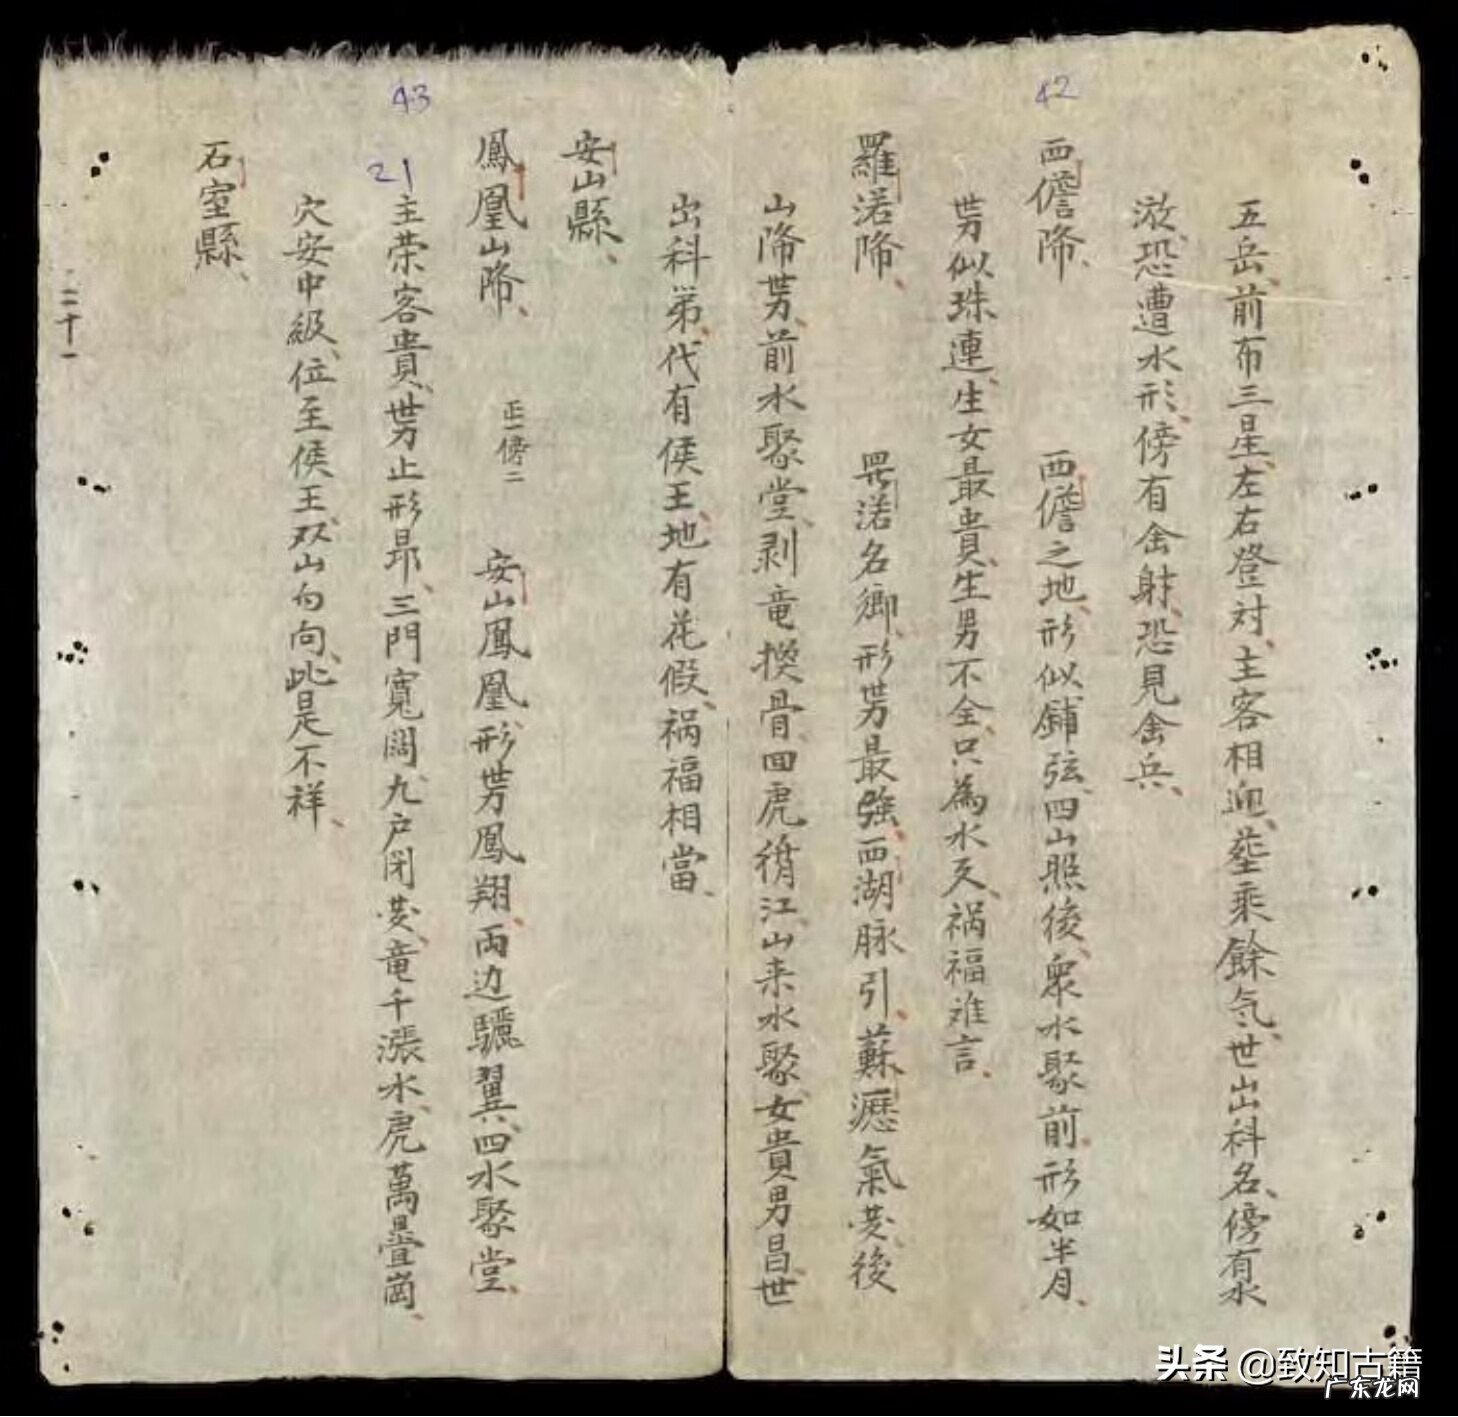 42
五岳、前布三星、左右登対、主客相迎、塋乘餘气、世出科名、傍有水
放、恐遭水形、傍有金射、恐見金兵、
西僐降、 西僐之地、形似鋪弦、四山照後、衆水聚前、形如半月、
势似珠連、生女最貴、生男不全、只為水反、祸福难言、
羅渃降、 罗渃名鄉、形势最強、西湖脉引、蘇瀝氣发、後
山降势、前水聚堂、剥竜換骨、回虎循江、山来水聚、女貴男昌、世
出科第、代有侯王、地有花假、祸福相當、
43
安山縣、
鳳凰山降、 正一傍二 安山鳳凰、形势鳳翔、两边驪翼、四水聚堂、
21
主荣客貴、势止形昂、三門寬闊、九户闭发、竜千漲水、虎萬疊崗、
穴安中級、位至侯王、双山向向、此是不祥、
石室縣、
二十一
头条 @致知古籍
广东龙网